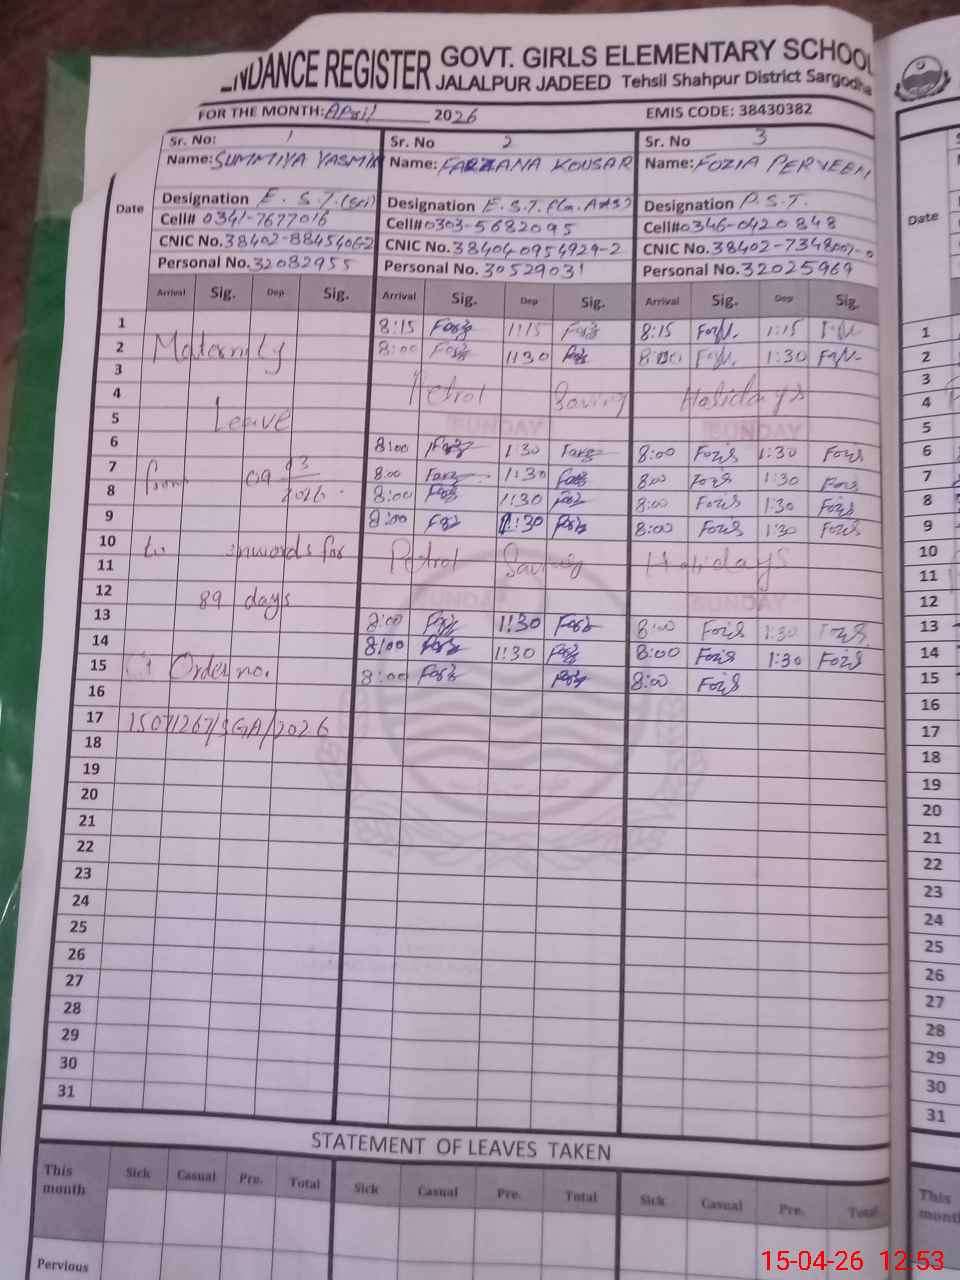 NDANCE REGISTER GOVT. GIRLS ELEMENTARY SCHOOL
JALALPUR JADEED Tehsil Shahpur District Sargodha
FOR THE MONTH: April 2026 EMIS CODE: 38430382
Sr. No: 1 Sr. No 2 Sr. No 3
Name: SUMMIYA YASMIN Name: FARZANA KOUSAR Name: FOZIA PERVEEN
Date Designation E.S.T.(Sci) Designation E.S.T. Designation P.S.T. Date
Cell# 0341-7677016 Cell# 0303-5682095 Cell# 0346-0420848
CNIC No. 38402-8845406-2 CNIC No. 38404 0954929-2 CNIC No. 38402-7348007-0
Personal No. 32082955 Personal No. 30529031 Personal No. 32025969
Arrival Sig. Dep Sig. Arrival Sig. Dep Sig. Arrival Sig. Dep Sig.
1 8:15 1:15 8:15 1:15 1
2 Maternity 8:00 1:30 8:00 1:30 2
3 3
4 Petrol Saving Holidays 4
5 Leave SUNDAY SUNDAY 5
6 8:00 1:30 8:00 Fozia 1:30 Fozia 6
7 from 09 03 8:00 1:30 8:00 Fozia 1:30 Fozia 7
8 2026 8:00 1:30 8:00 Fozia 1:30 Fozia 8
9 8:00 1:30 8:00 Fozia 1:30 Fozia 9
10 to onwards for Petrol Saving Holidays 10
11 11
12 89 days SUNDAY SUNDAY 12
13 8:00 1:30 8:00 Fozia 1:30 Fozia 13
14 8:00 1:30 8:00 Fozia 1:30 Fozia 14
15 Order no. 8:00 8:00 Fozia 15
16 16
17 1507/267/SGA/2026 17
18 18
19 19
20 20
21 21
22 22
23 23
24 24
25 25
26 26
27 27
28 28
29 29
30 30
31 31
STATEMENT OF LEAVES TAKEN
This month Sick Casual Pre. Total Sick Casual Pre. Total Sick Casual Pre. Total This month
Pervious
15-04-26 12:53